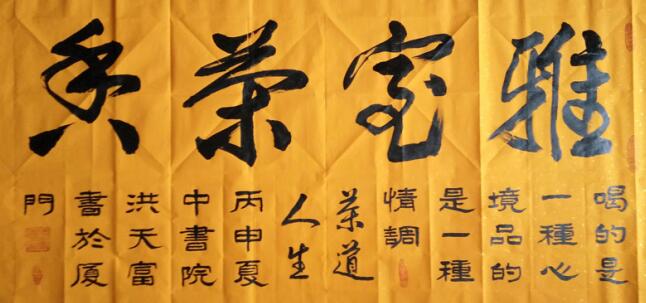 雅室茶香
喝的是
一種心
境品的
是一種
情調
茶道
人生
丙申夏
中書院
洪天富
書於厦
門